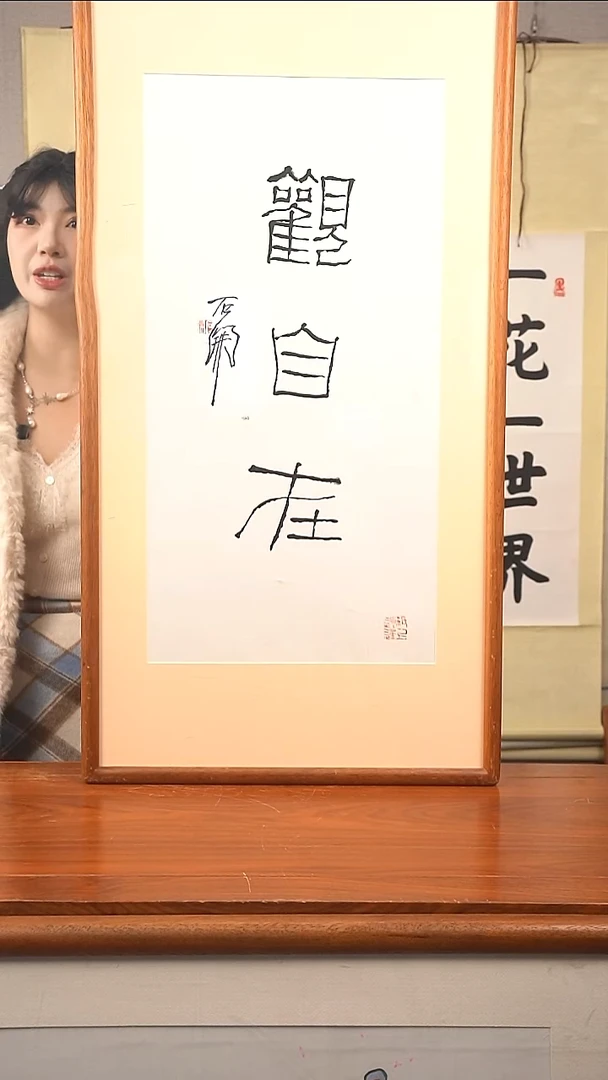 觀自在
石開
一花一世界